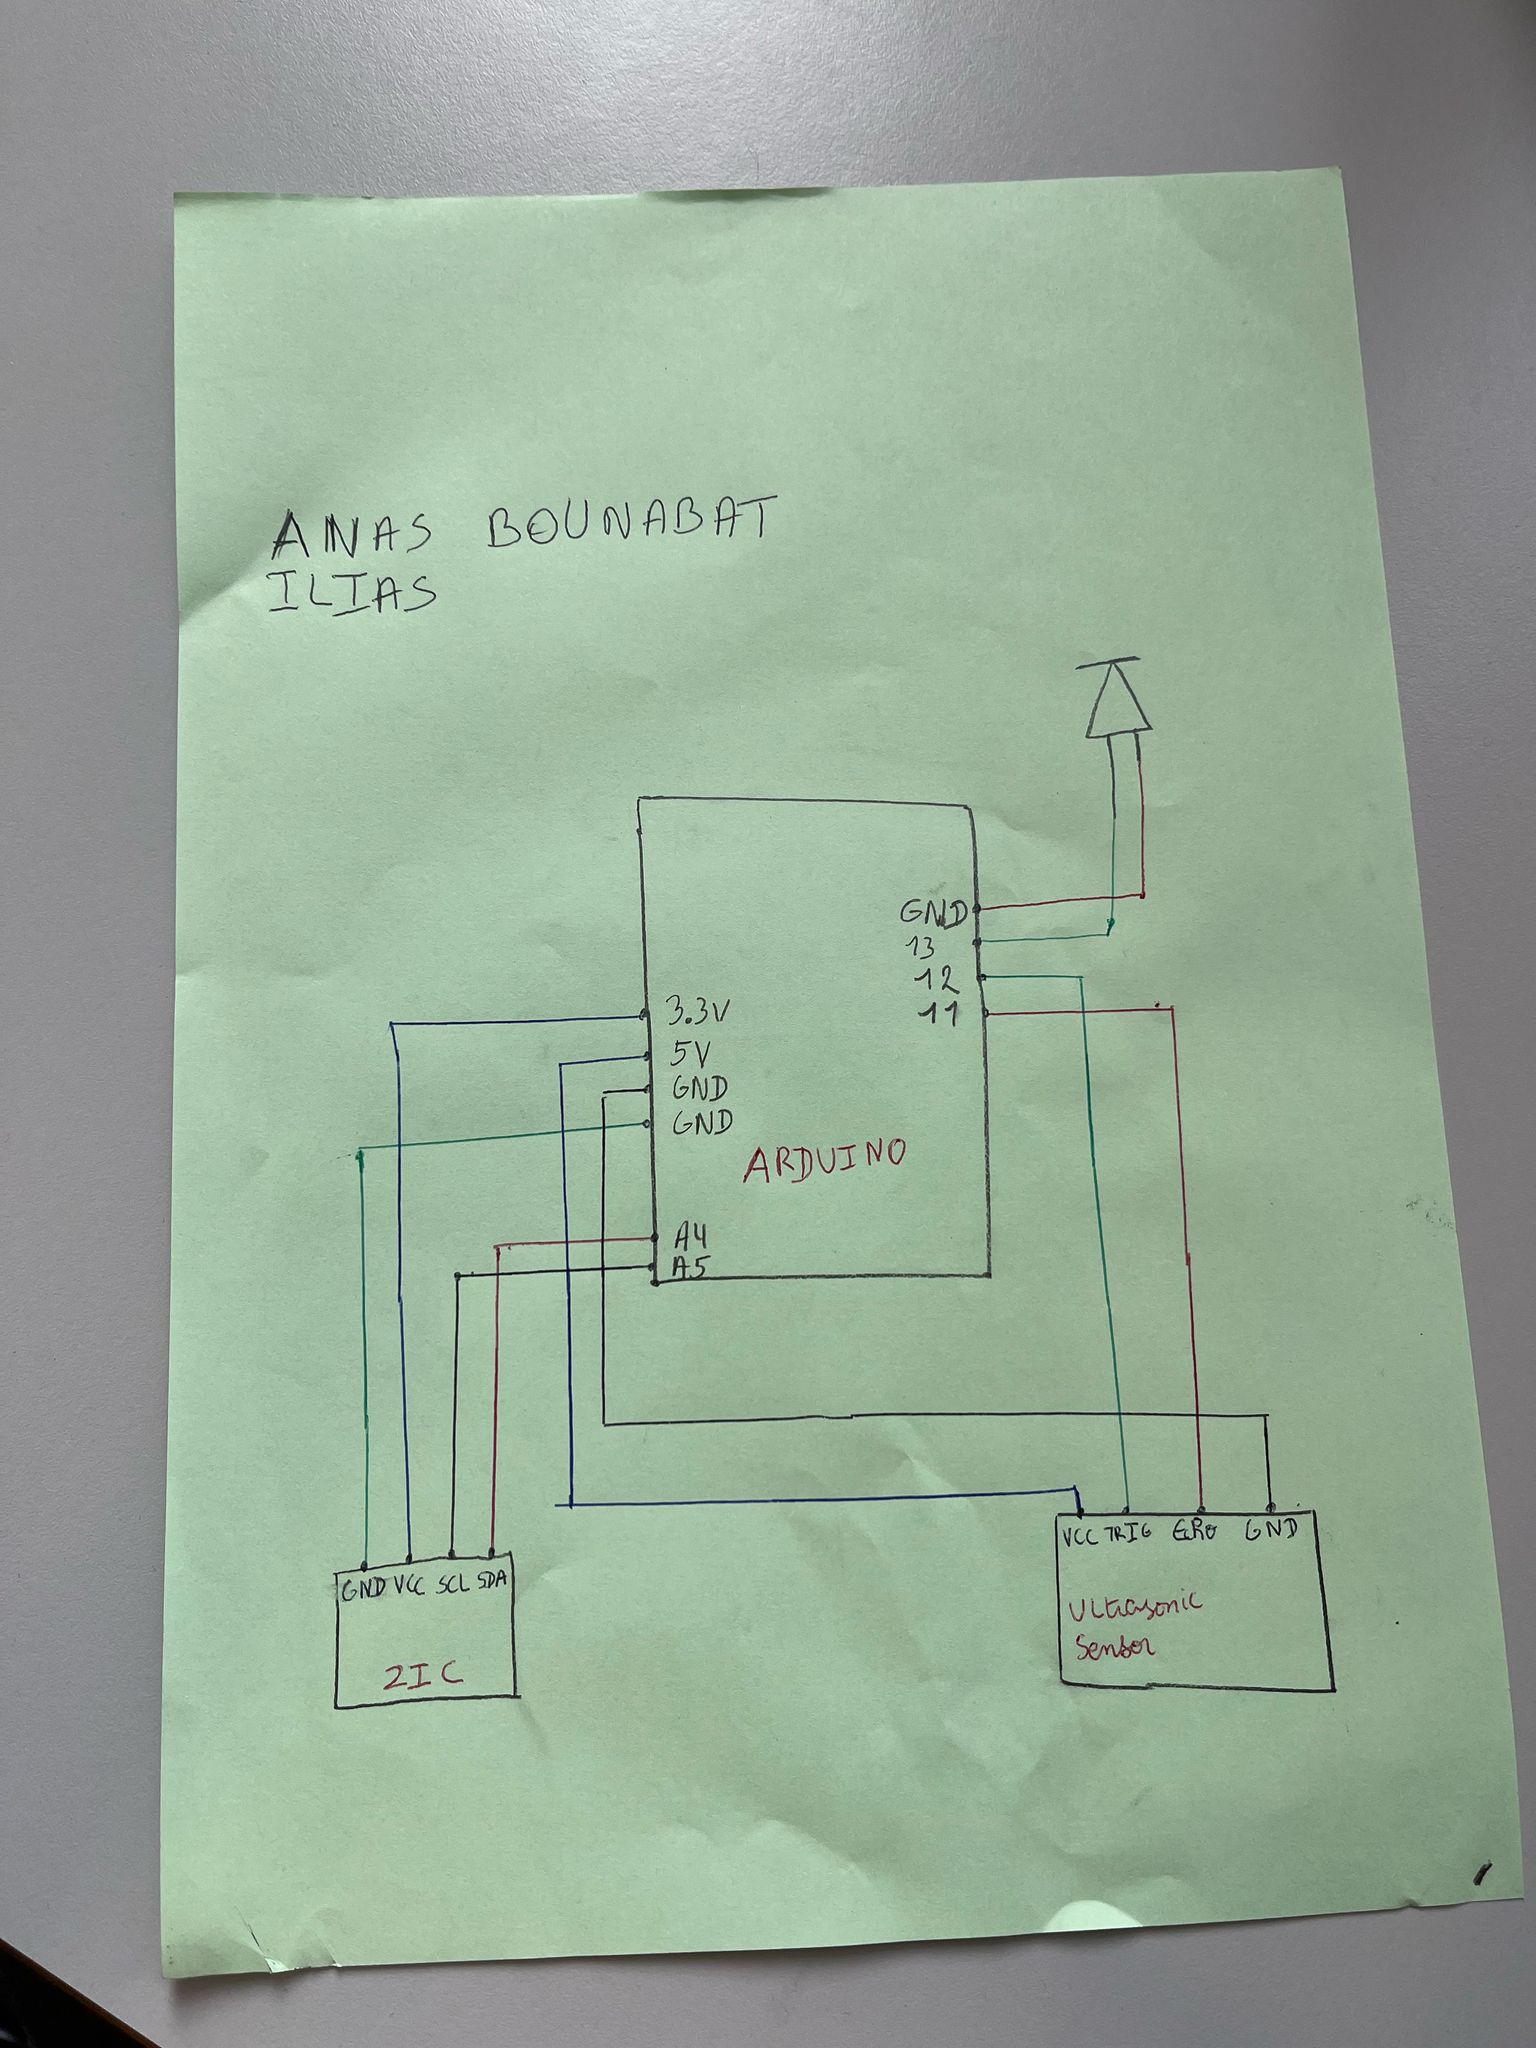 ANAS BOUNABAT
ILIAS
GND
13
12
11
3.3V
5V
GND
GND
ARDUINO
A4
A5
GND VCC SCL SDA
2IC
VCC TRIG GND
Ultrasonic
Sensor